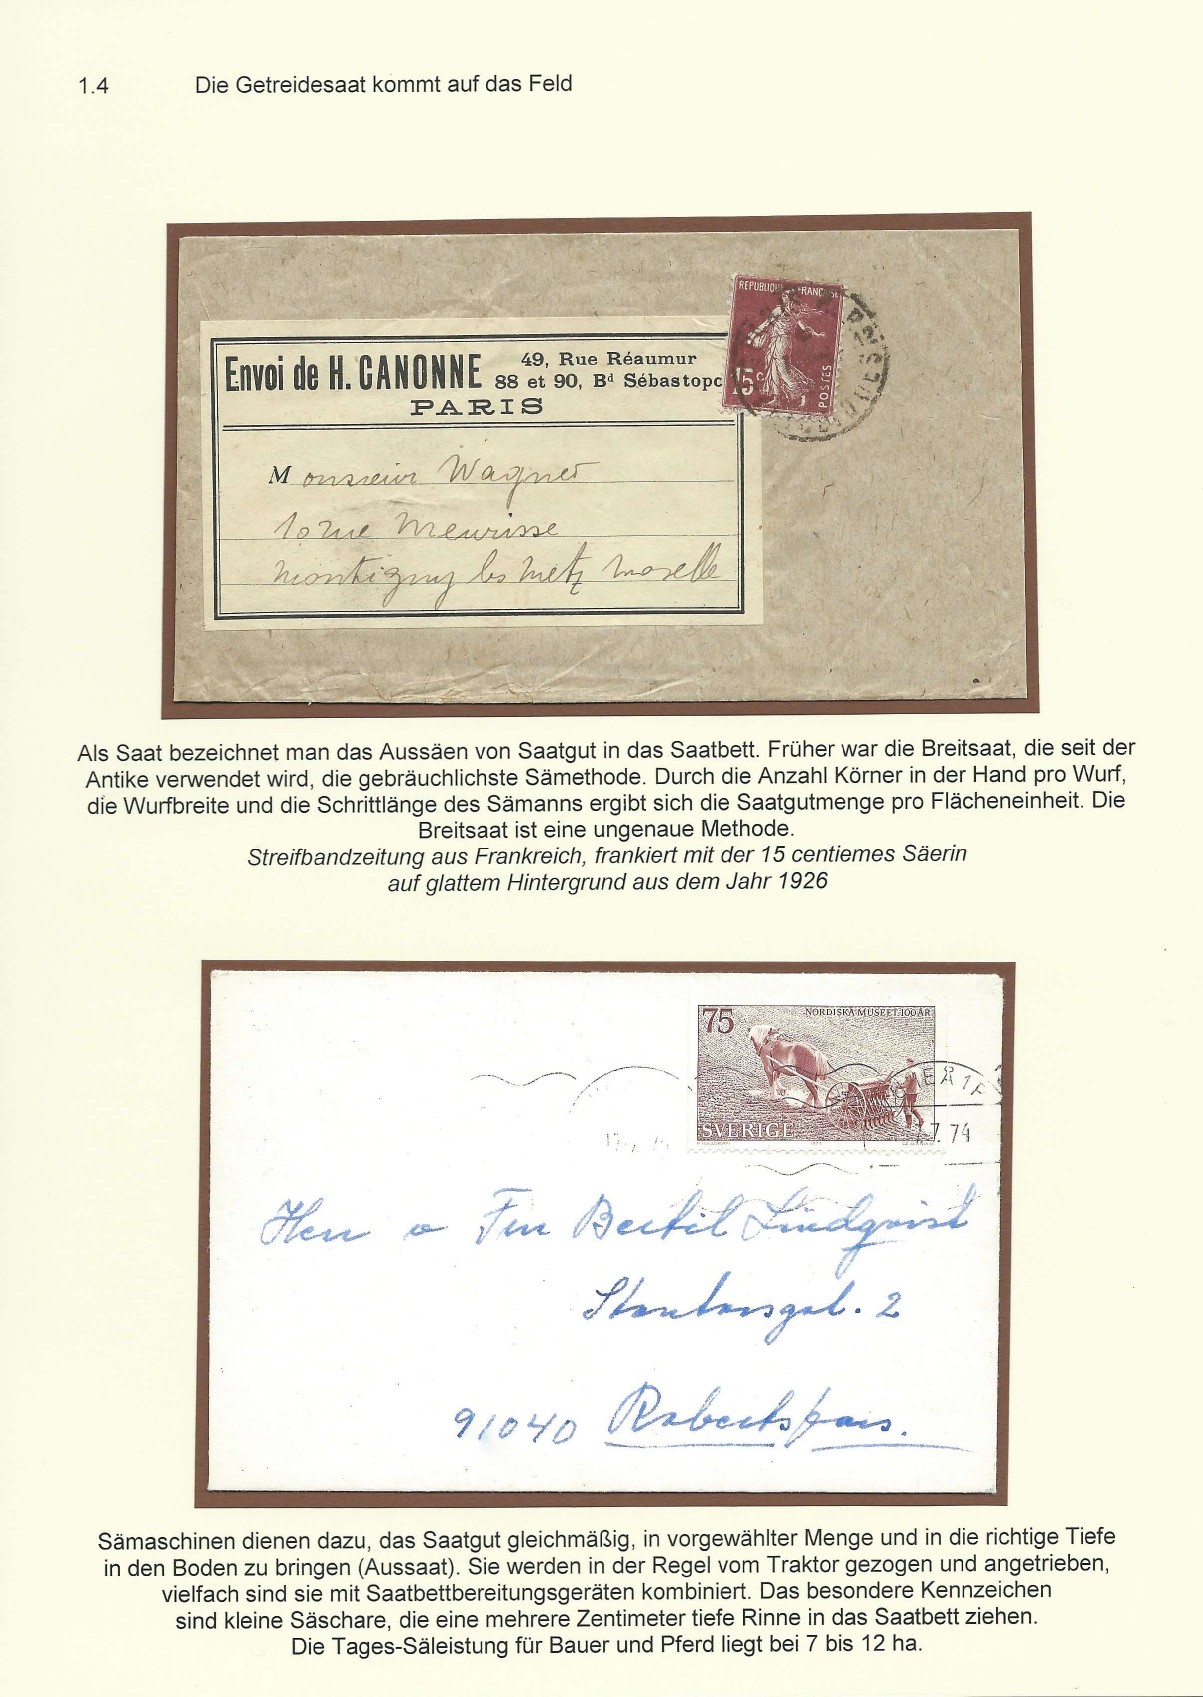 1.4 Die Getreidesaat kommt auf das Feld
REPUBLIQUE FRANÇAISE
15c
POSTES
Envoi de H. CANONNE
49, Rue Réaumur
88 et 90, Bd Sébastopo
PARIS
Monsieur Wagner
10 rue Meurisse
Montigny les Metz Moselle
Als Saat bezeichnet man das Aussäen von Saatgut in das Saatbett. Früher war die Breitsaat, die seit der
Antike verwendet wird, die gebräuchlichste Sämethode. Durch die Anzahl Körner in der Hand pro Wurf,
die Wurfbreite und die Schrittlänge des Sämanns ergibt sich die Saatgutmenge pro Flächeneinheit. Die
Breitsaat ist eine ungenaue Methode.
Streifbandzeitung aus Frankreich, frankiert mit der 15 centiemes Säerin
auf glattem Hintergrund aus dem Jahr 1926
75 NORDISKA MUSEET 100 ÅR
SVERIGE
7.74
Herr o Fru Bertil Lindqvist
91040 Robertsfors.
Sämaschinen dienen dazu, das Saatgut gleichmäßig, in vorgewählter Menge und in die richtige Tiefe
in den Boden zu bringen (Aussaat). Sie werden in der Regel vom Traktor gezogen und angetrieben,
vielfach sind sie mit Saatbettbereitungsgeräten kombiniert. Das besondere Kennzeichen
sind kleine Säschare, die eine mehrere Zentimeter tiefe Rinne in das Saatbett ziehen.
Die Tages-Säleistung für Bauer und Pferd liegt bei 7 bis 12 ha.